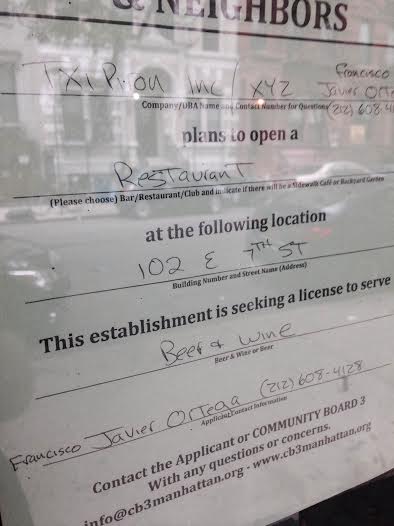 & NEIGHBORS
TXiPiron Inc / XYZ Francisco
Javier Orte
Company/DBA Name and Contact Number for Questions (212) 608-4
plans to open a
Restaurant
(Please choose) Bar/Restaurant/Club and indicate if there will be a Sidewalk Café or Backyard Garden
at the following location
102 E 7TH ST
Building Number and Street Name (Address)
This establishment is seeking a license to serve
Beer & Wine
Beer & Wine or Beer
Francisco Javier Ortega (212) 608-4128
Applicant Contact Information
Contact the Applicant or COMMUNITY BOARD 3
With any questions or concerns.
info@cb3manhattan.org - www.cb3manhattan.org